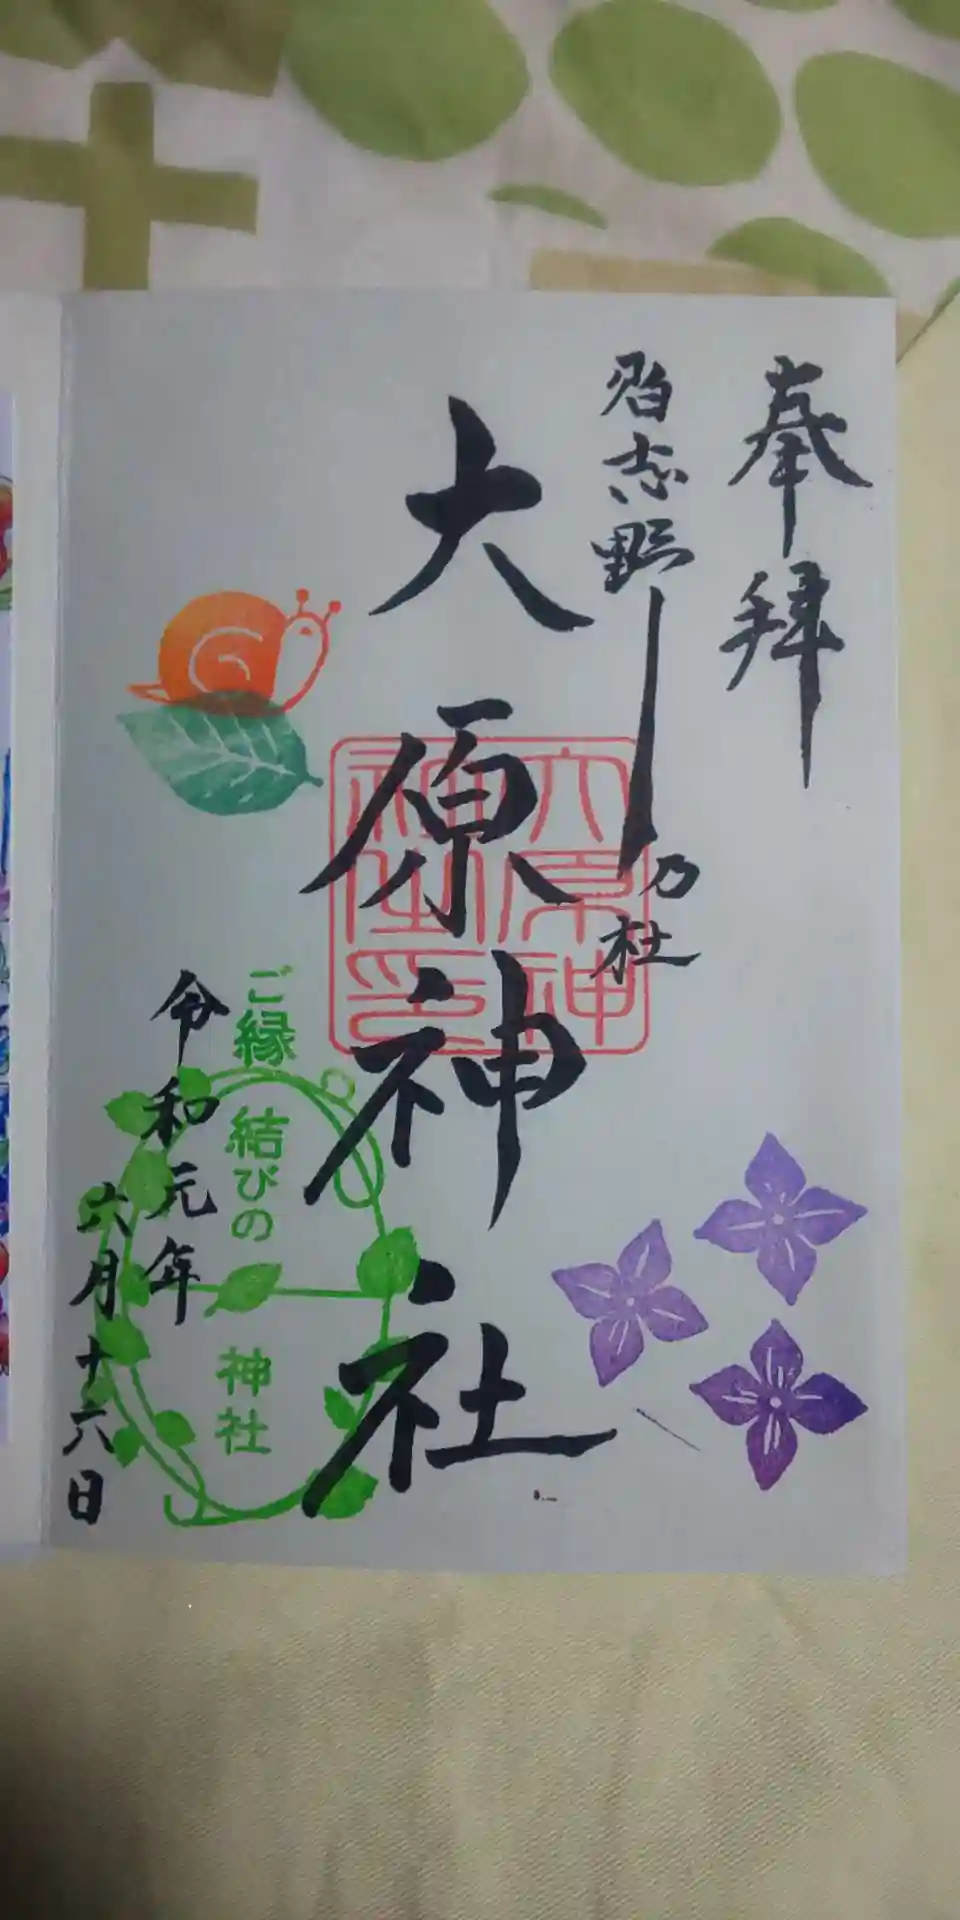 奉拝
習志野乃社
大原神社
大原神
社之印
ご縁結びの神社
令和元年
六月十六日